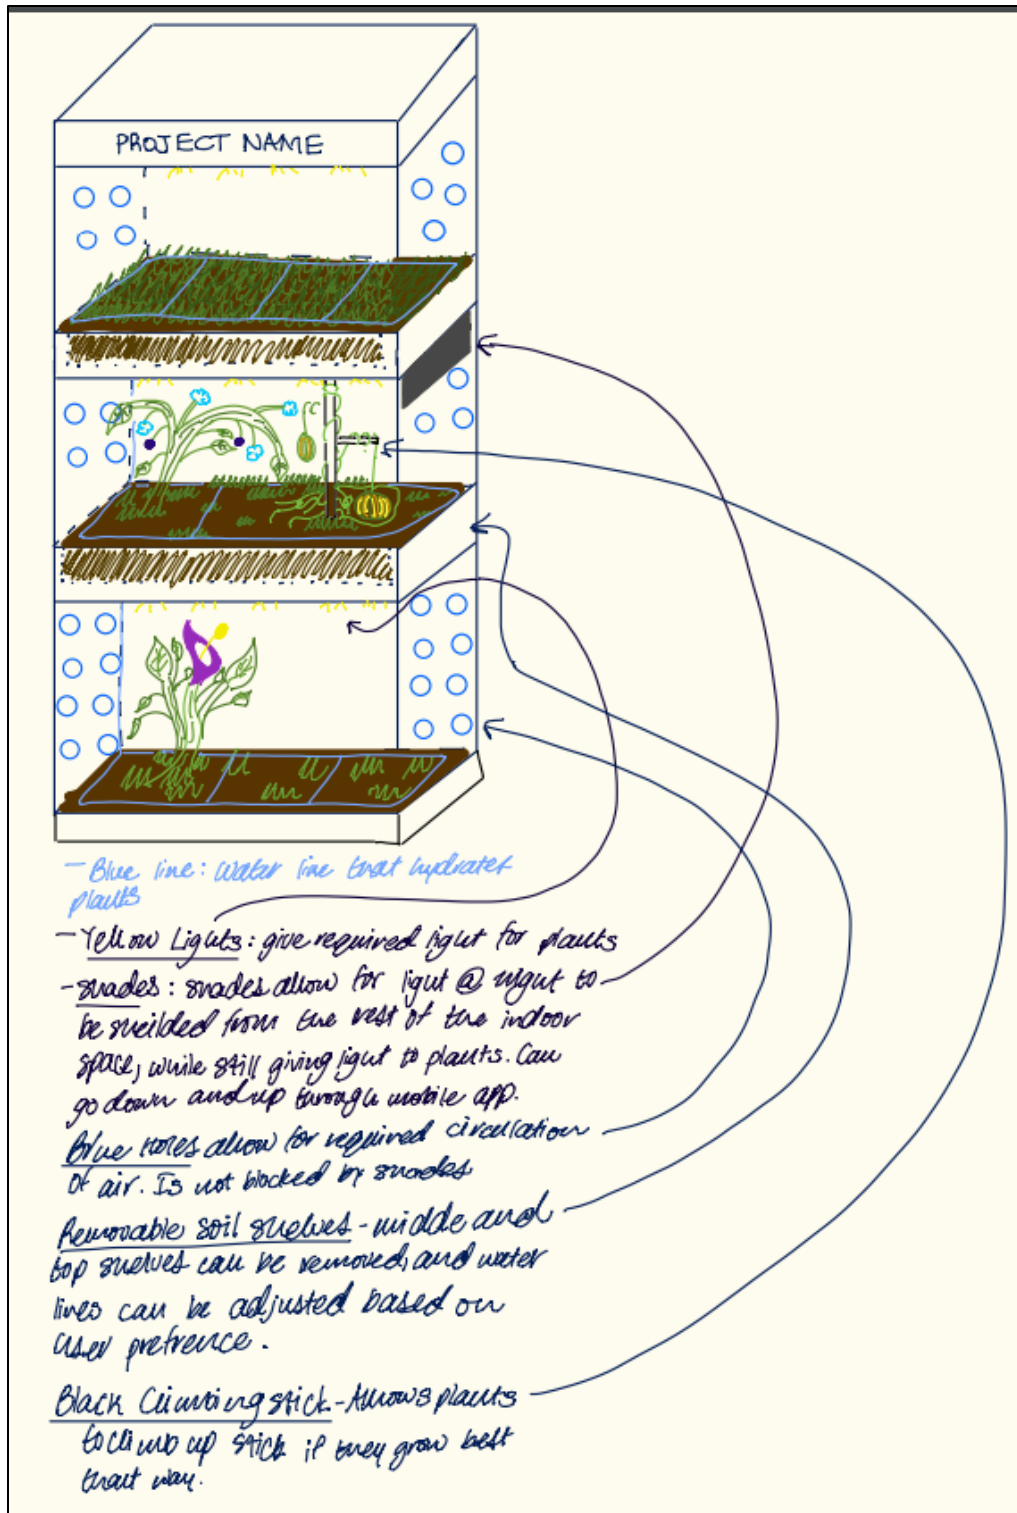 PROJECT NAME
- Blue line: Water line that hydrates
plants
- Yellow Lights: give required light for plants
- shades: shades allow for light @ night to
be sheilded from the rest of the indoor
space, while still giving light to plants. Can
go down and up through mobile app.
Blue Holes allow for required circulation
of air. Is not blocked by shades
Removable soil shelves - middle and
top shelves can be removed, and water
lines can be adjusted based on
user prefrence.
Black Climbing stick - Allows plants
to climb up stick if they grow best
that way.